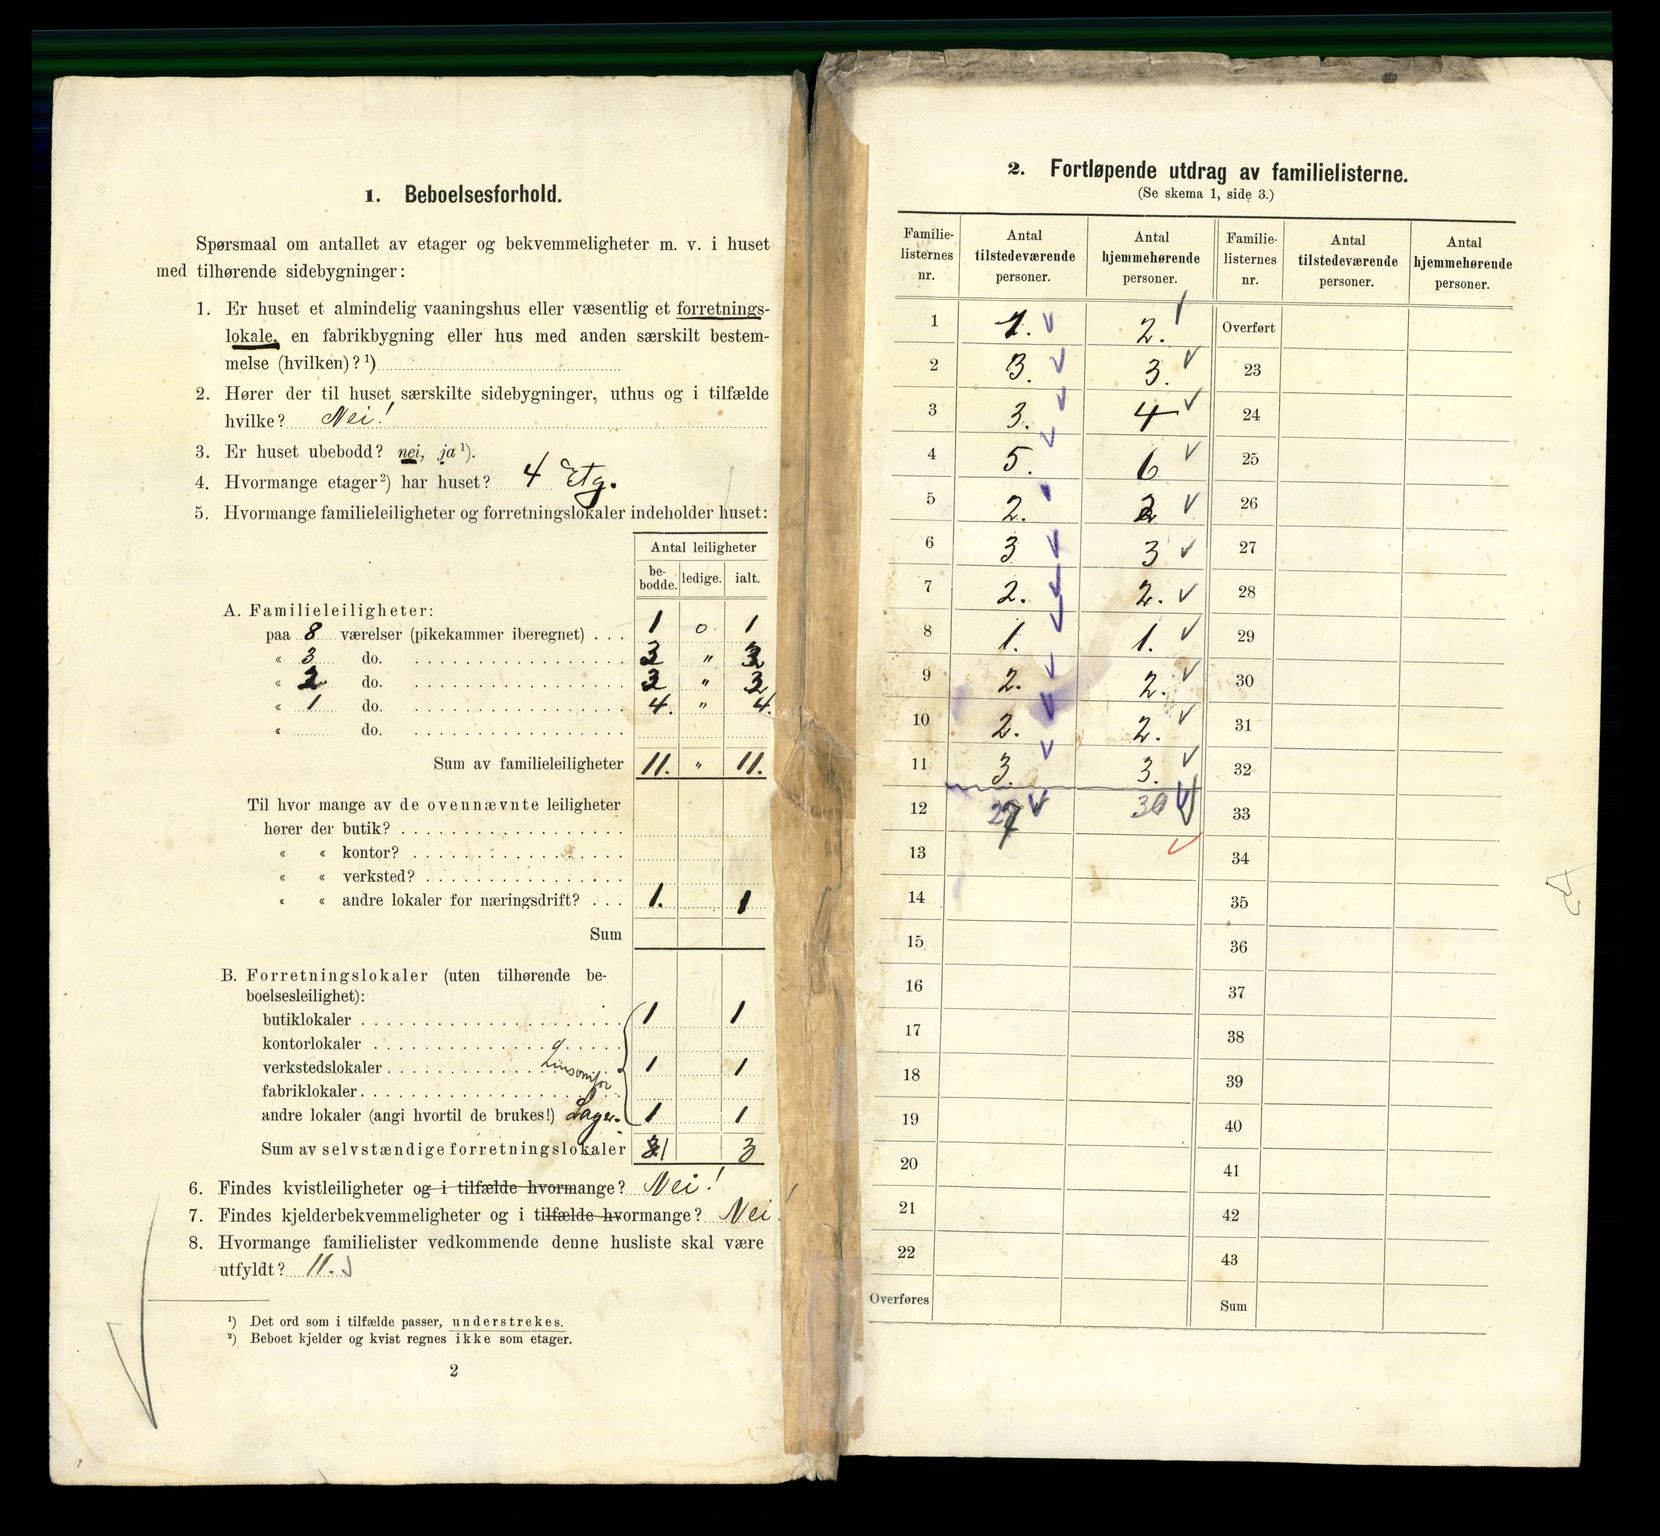 1. Beboelsesforhold.
Spørsmaal om antallet av etager og bekvemmeligheter m. v. i huset
med tilhørende sidebygninger:
1. Er huset et almindelig vaaningshus eller væsentlig et forretnings-
lokale, en fabrikbygning eller hus med anden særskilt bestem-
melse (hvilken)? ¹)
2. Hører der til huset særskilte sidebygninger, uthus og i tilfælde
hvilke? Nei!
3. Er huset ubebodd? nei, ja ¹).
4. Hvormange etager ²) har huset? 4 Etg.
5. Hvormange familieleiligheter og forretningslokaler indeholder huset:
Antal leiligheter
be-bodde. ledige. ialt.
A. Familieleiligheter:
paa 8 værelser (pikekammer iberegnet) . . . 1 o 1
« 3 do. 3 " 3
« 2 do. 3 " 3
« 1 do. 4. " 4.
« do.
Sum av familieleiligheter 11. " 11.
Til hvor mange av de ovennævnte leiligheter
hører der butik?
« « kontor?
« « verksted?
« « andre lokaler for næringsdrift? . . . 1. 1
Sum
B. Forretningslokaler (uten tilhørende be-
boelsesleilighet):
butiklokaler 1 1
kontorlokaler
verkstedslokaler 1 1
fabriklokaler
andre lokaler (angi hvortil de brukes!) Lager. 1 1
Sum av selvstændige forretningslokaler 1 3
6. Findes kvistleiligheter og i tilfælde hvormange? Nei!
7. Findes kjelderbekvemmeligheter og i tilfælde hvormange? Nei!
8. Hvormange familielister vedkommende denne husliste skal være
utfyldt? 11.
¹) Det ord som i tilfælde passer, understrekes.
²) Beboet kjelder og kvist regnes ikke som etager.
2
2. Fortløpende utdrag av familielisterne.
(Se skema 1, side 3.)
Familie-listernes nr. Antal tilstedeværende personer. Antal hjemmehørende personer. Familie-listernes nr. Antal tilstedeværende personer. Antal hjemmehørende personer.
1 1. 2. Overført
2 3. 3. 23
3 3. 4 24
4 5. 6 25
5 2. 2 26
6 3 3 27
7 2. 2. 28
8 1. 1. 29
9 2. 2. 30
10 2. 2. 31
11 3. 3. 32
12 27 30 33
13 34
14 35
15 36
16 37
17 38
18 39
19 40
20 41
21 42
22 43
Overføres Sum